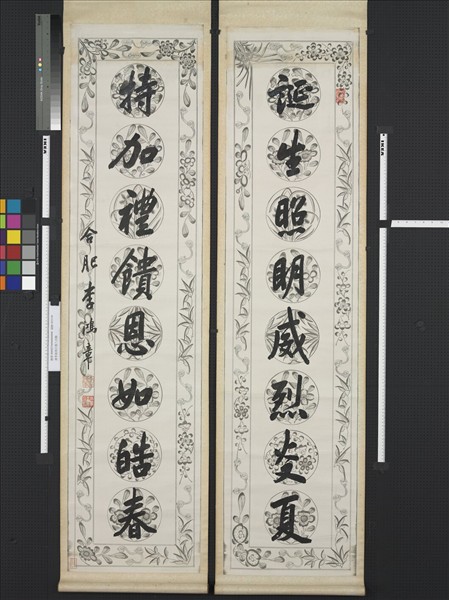 誕生照明威烈炎夏
特加禮饋恩如皓春
合肥李鴻章